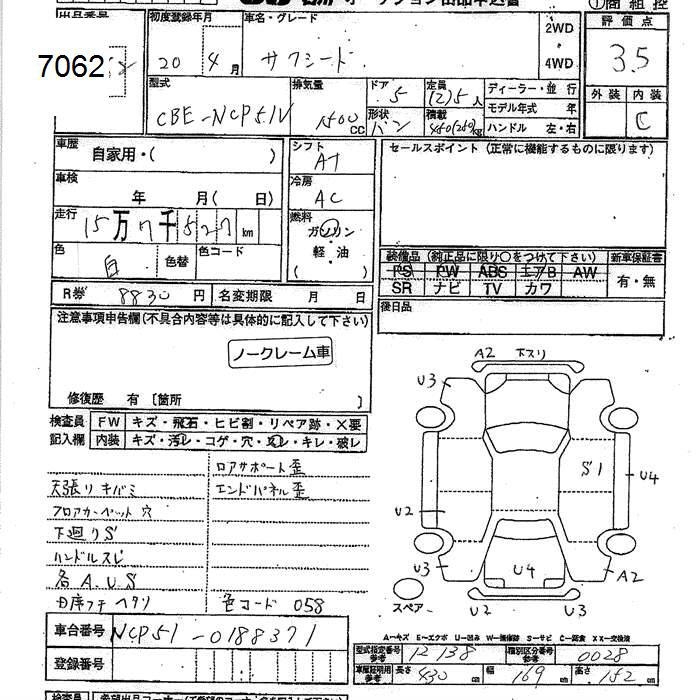 出品番号
7062
初度登録年月
20年 4月
車名・グレード
サクシード
2WD
4WD
評価点
3.5
外装 内装
C
型式
CBE-NCP51V
排気量
1500cc
ドア
5
形状
バン
定員
(2)5人
積載
450(250)kg
ディーラー・並行
モデル年式 年
ハンドル 左・右
車歴
自家用・( )
車検
年 月( 日)
走行
15万7千527km
色
白
色替
色コード
シフト
AT
冷房
AC
燃料
ガソリン・軽油
( )
セールスポイント(正常に機能するものに限ります)
装備品(純正品に限り○をつけて下さい)
PS PW ABS エアB AW
SR ナビ TV カワ
新車保証書
有・無
R券 8830円
名変期限 月 日
後日品
注意事項申告欄(不具合内容等は具体的に記入して下さい)
ノークレーム車
修復歴 有 〔箇所 〕
検査員 FW キズ・飛石・ヒビ割・リペア跡・X要
記入欄 内装 キズ・汚レ・コゲ・穴・スレ・キレ・破レ
天張リキバミ
フロアカーペット穴
下廻りS
ハンドルスレ
各A.U.S
ロアサポート歪
エンドパネル歪
色コード 058
A2 下スリ
U3
S1
U4
U2
U3
U4
A2
U2
U3
スペア
車台番号 NCP51-0188371
登録番号
A-キズ E-エクボ U-凹み W-補修跡 S-サビ C-腐食 XX-交換済
型式指定番号 参考 12138
類別区分番号 参考 0028
車庫証明用 参考 長さ 430cm 幅 169cm 高さ 152cm